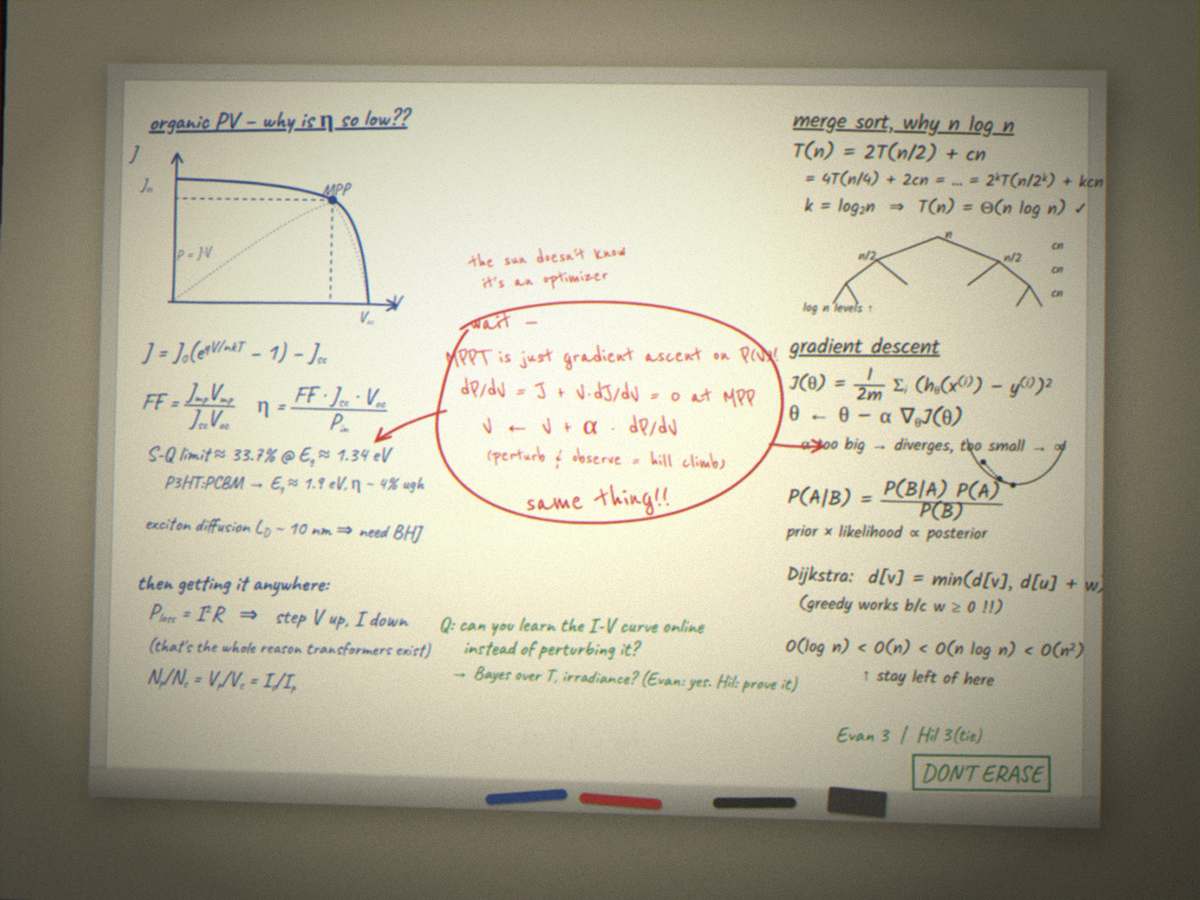 organic PV – why is η so low??
J
MPP
P = J·V
V
J = J₀(e^qV/nkT – 1) – Jsc
FF = JmpVmp / JscVoc   η = FF · Jsc · Voc / Pin
S-Q limit ≈ 33.7% @ Eg ≈ 1.34 eV
P3HT:PCBM → Eg ≈ 1.9 eV, η ~ 4% ugh
exciton diffusion LD ~ 10 nm ⇒ need BHJ
then getting it anywhere:
Ploss = I²R ⇒ step V up, I down
(that's the whole reason transformers exist)
the sun doesn't know
it's an optimizer
wait –
MPPT is just gradient ascent on P(V)!
dP/dV = J + V·dJ/dV = 0 at MPP
V ← V + α · dP/dV
(perturb & observe = hill climb)
same thing!!
Q: can you learn the I-V curve online
instead of perturbing it?
→ Bayes over T, irradiance? (Evan: yes. Hil: prove it)
merge sort, why n log n
T(n) = 2T(n/2) + cn
= 4T(n/4) + 2cn = ... = 2ᵏT(n/2ᵏ) + kcn
k = log₂n ⇒ T(n) = Θ(n log n) ✓
n
n/2 n/2
cn
cn
cn
log n levels ↑
gradient descent
J(θ) = 1/2m Σᵢ (hθ(x⁽ⁱ⁾) – y⁽ⁱ⁾)²
θ ← θ – α ∇θJ(θ)
α too big → diverges, too small →
P(A|B) = P(B|A) P(A) / P(B)
prior × likelihood ∝ posterior
Dijkstra: d[v] = min(d[v], d[u] + w)
(greedy works b/c w ≥ 0 !!)
O(log n) < O(n) < O(n log n) < O(n²)
↑ stay left of here
Evan 3 / Hil 3(tie)
DON'T ERASE